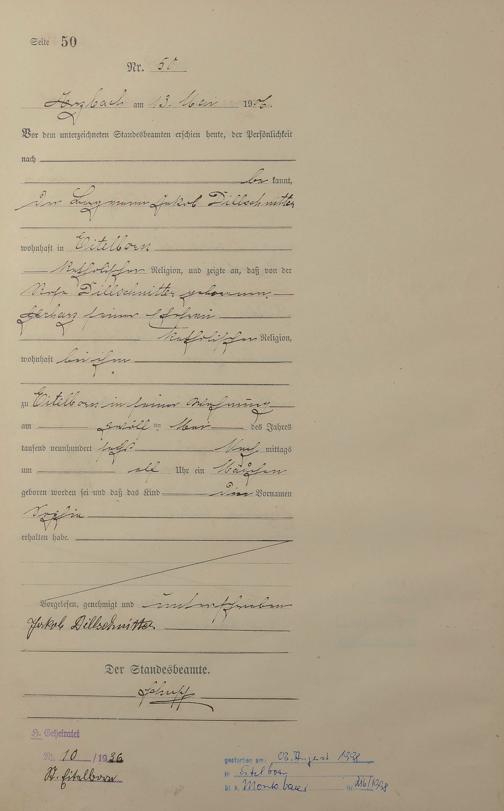 Seite 50
Nr. 50
am 13. Mai 1906.
Vor dem unterzeichneten Standesbeamten erschien heute, der Persönlichkeit
nach
be kannt,
der Bergmann Jakob Dillschnitter
wohnhaft in Eitelborn
katholischer Religion, und zeigte an, daß von der
Dillschnitter geborenen
seiner Ehefrau
katholischer Religion,
wohnhaft bei ihm
zu Eitelborn in seiner Wohnung
am zwölften Mai des Jahres
tausend neunhundert sechs Nach mittags
um elf Uhr ein Mädchen
geboren worden sei und daß das Kind den Vornamen
Sophia
erhalten habe.
Vorgelesen, genehmigt und unterschrieben
Jakob Dillschnitter
Der Standesbeamte.
Schupp
H. Geheiratet
Nr. 10 / 1926
St. Eitelborn
gestorben am: 02. August 1998
in Eitelborn
St. A. Montabaur Nr. 216/1998